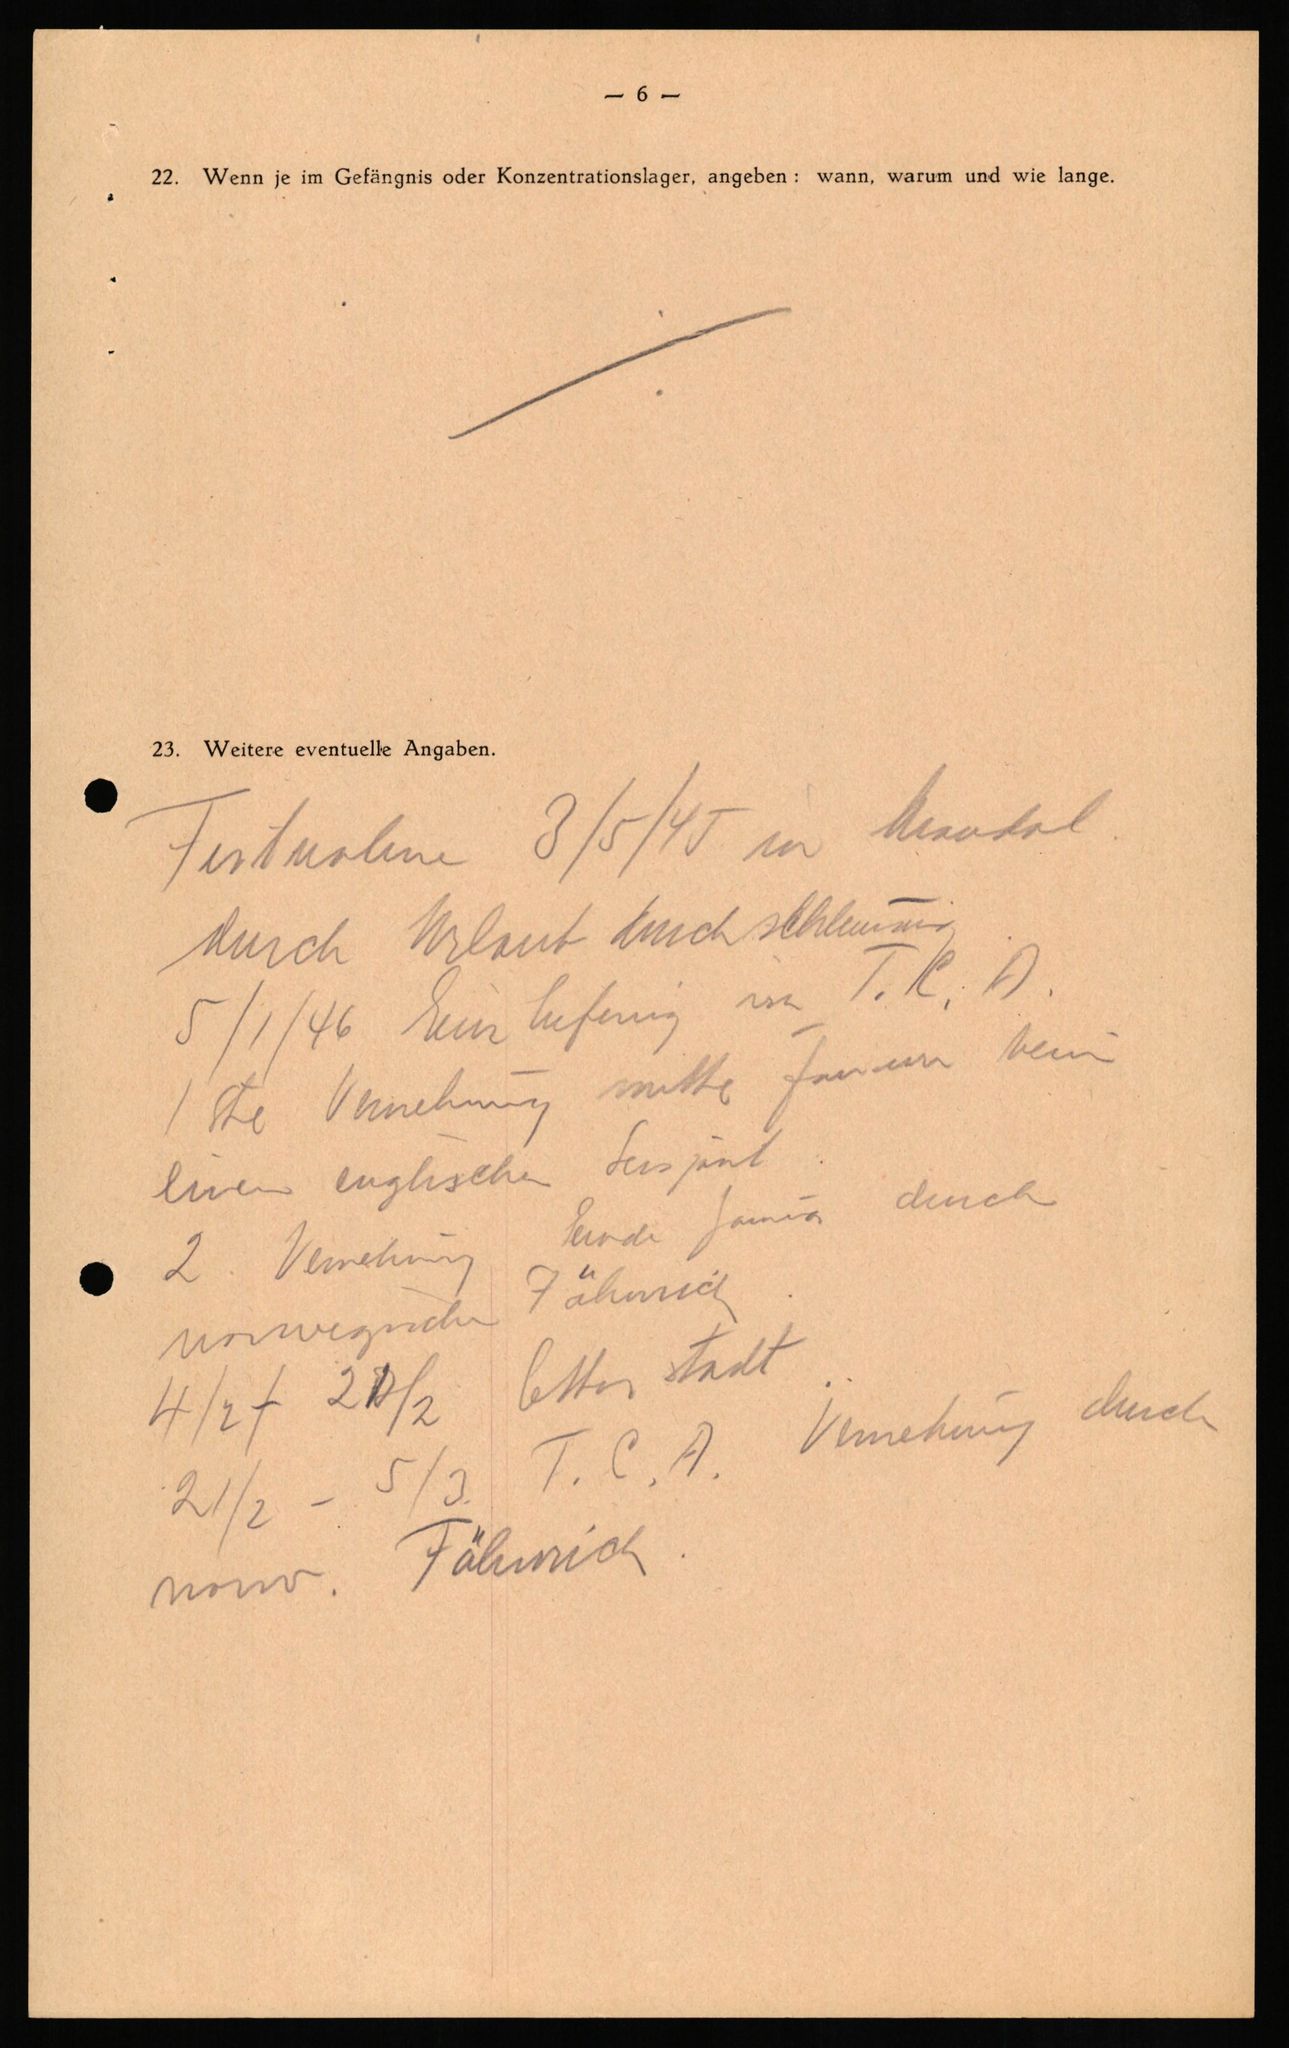 — 6 —
22. Wenn je im Gefängnis oder Konzentrationslager, angeben: wann, warum und wie lange.
23. Weitere eventuelle Angaben.
Festnahme 3/5/45 in Mandal.
durch Urlaub durch
5/1/46 Einlieferung in T. C. A.
1 ste Vernehmung mitte Januar
einen englischen Sersjant.
2. Vernehmung Ende Januar durch
norwegischen Fähnrich.
4/2 21/2 stadt.
21/2 - 5/3. T. C. A. Vernehmung durch
norw. Fähnrich.